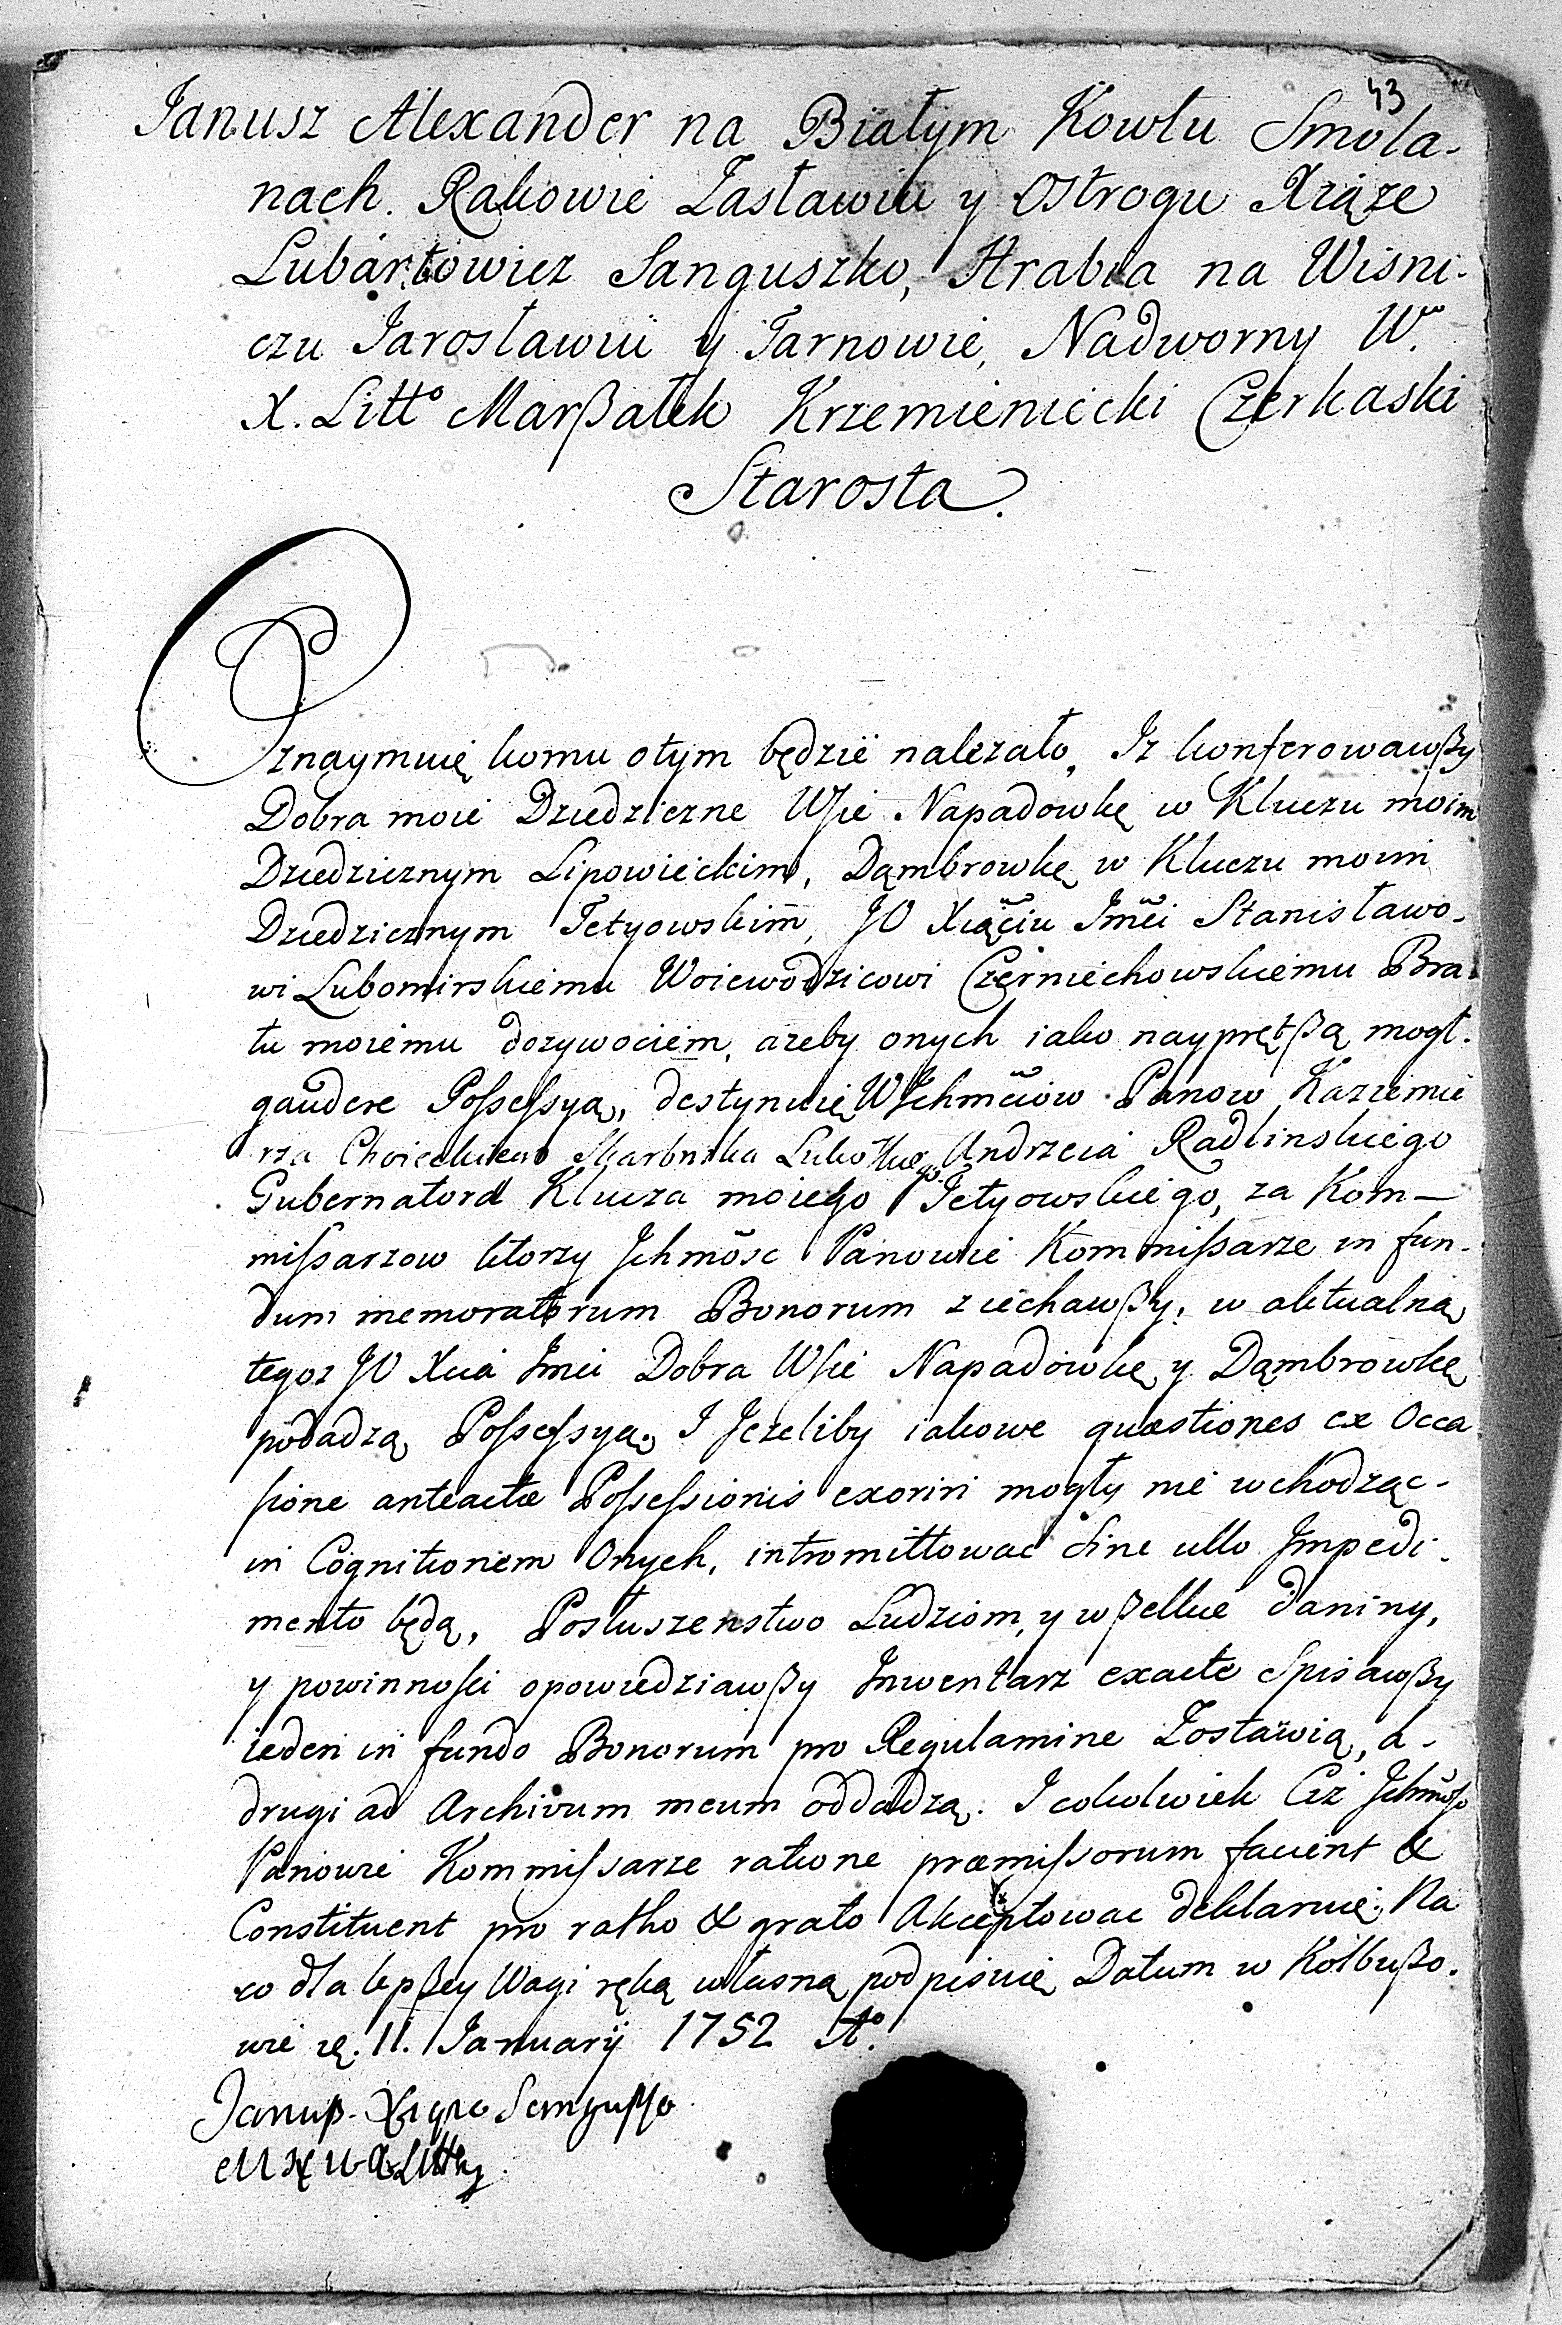 43
Janusz Alexander na Białym Kowlu Smola-
nach. Rakowie Zasławiu y Ostrogu Xiąże
Lubartowicz Sanguszko, Hrabia na Wisni-
czu Jarosławiu y Tarnowie, Nadworny W.
X. Litt° Marßałek Krzemieniecki Czerkaski
Starosta.
Oznaymuię komu otym będzie nalezało, Iz konferowawßy
Dobra moie Dziedziczne Wsie Napadowkę w Kluczu moim
Dziedzicznym Lipowieckim, Dąmbrowkę w Kluczu moim
Dziedzicznym Tetyowskim, JO Xiąciu Jmci Stanisławo-
wi Lubomirskiemu Woiewodzicowi Czerniechowskiemu Bra-
tu moiemu dozywociem, azeby onych iako nayprętßą mogł.
gaudere Possessyą, destynuię WJchmciow Panow Kazimie
rza Choieckiego Skarbnika Andrzeia Radlinskiego
Gubernatora Klucza moiego Tetyowskiego, za Kom-
missarzow ktorzy Jchmosc Panowie Kommissarze in fun-
dum memoratorum Bonorum ziechawßy, w aktualną
tegoz JO Xcia Jmci Dobra Wsie Napadowkę y Dąmbrowkę
podadzą Possessyą. I Jezeliby iakowe quæstiones ex Occa
sione anteactæ Possessionis exoriri mogły nie wchodząc-
in Cognitionem Onych, intromittowac sine ullo Impedi-
mento będą, Posłuszenstwo Ludziom, y wßelkie daniny,
y powinnosci opowiedziawßy Inwentarz exacte spisawßy
ieden in fundo Bonorum pro Regulamine Zostawią, a-
drugi ad Archivum meum oddadzą. I cokolwiek Ciż Jchmość
Panowie Kommissarze ratione præmissorum facient &
Constituent pro ratho & grato Akceptowac deklaruię. Na
co dla lepßey Wagi ręką własną podpisuię Datum w Kolbußo-
wie 11. Januarij 1752 A°.
Januß Xiąże Sanguszko